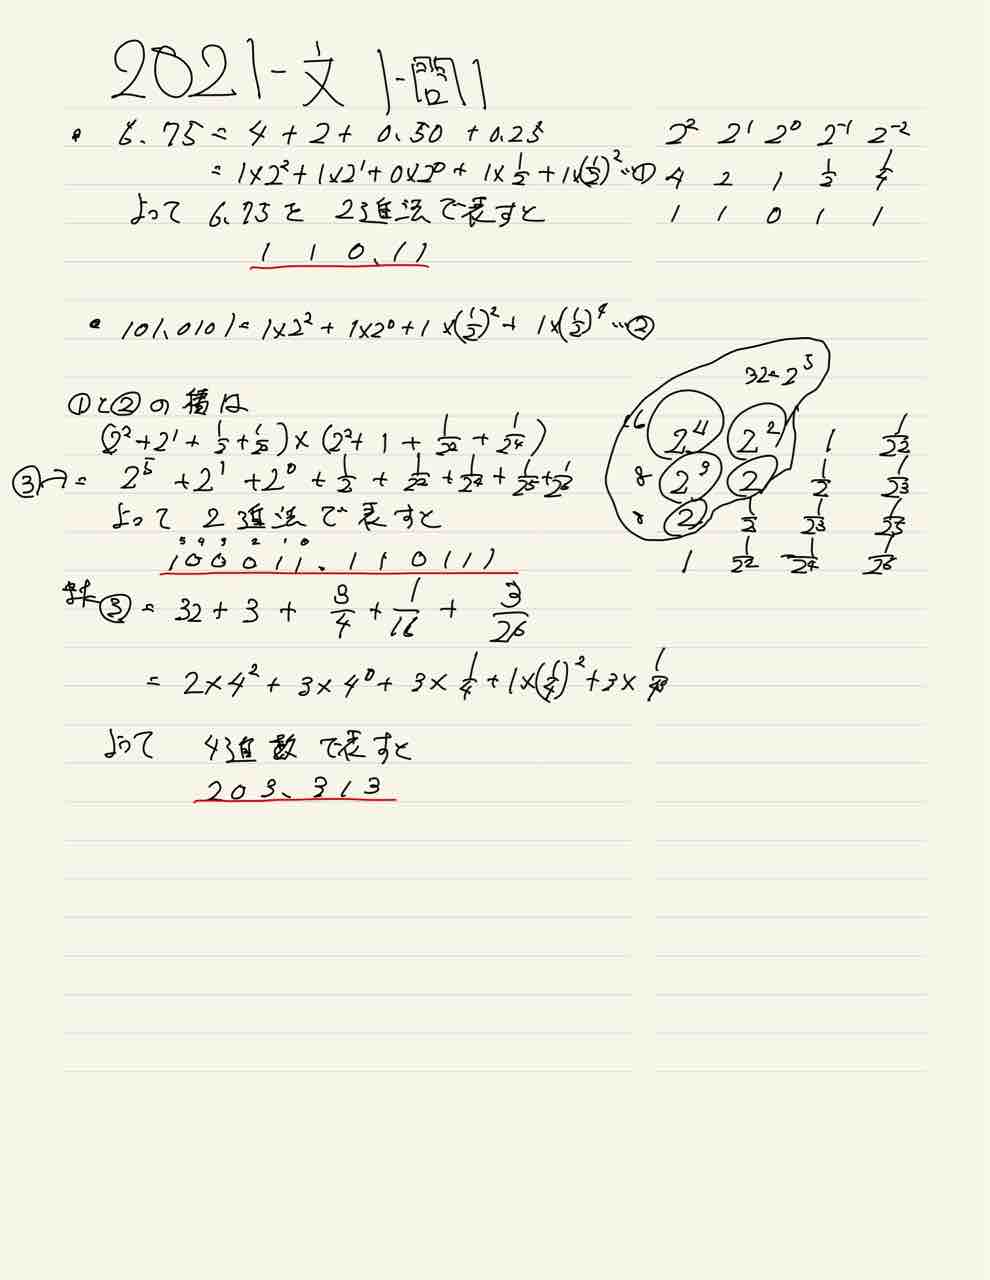 2021-文 1-問1
・ 6.75 = 4 + 2 + 0.50 + 0.25
= 1×2² + 1×2¹ + 0×2⁰ + 1×1/2 + 1×(1/2)² … ①
よって 6.75を 2進法で表すと
1 1 0.11
2² 2¹ 2⁰ 2⁻¹ 2⁻²
4 2 1 1/2 1/4
1 1 0 1 1
・ 101.0101 = 1×2² + 1×2⁰ + 1×(1/2)² + 1×(1/2)⁴ … ②
①と②の積は
(2² + 2¹ + 1/2 + 1/2²) × (2² + 1 + 1/2² + 1/2⁴)
③ = 2⁵ + 2¹ + 2⁰ + 1/2 + 1/2² + 1/2⁴ + 1/2⁵ + 1/2⁶
よって 2進法で表すと
5 4 3 2 1 0
100011.110111
32=2⁵
16 2⁴ 2² 1 1/2²
8 2³ 2 1/2 1/2³
8 2 1/2 1/2³ 1/2⁵
1 1/2² 1/2⁴ 1/2⁶
③ = 32 + 3 + 3/4 + 1/16 + 3/2⁶
= 2×4² + 3×4⁰ + 3×1/4 + 1×(1/4)² + 3×1/4³
よって 4進数で表すと
203.313